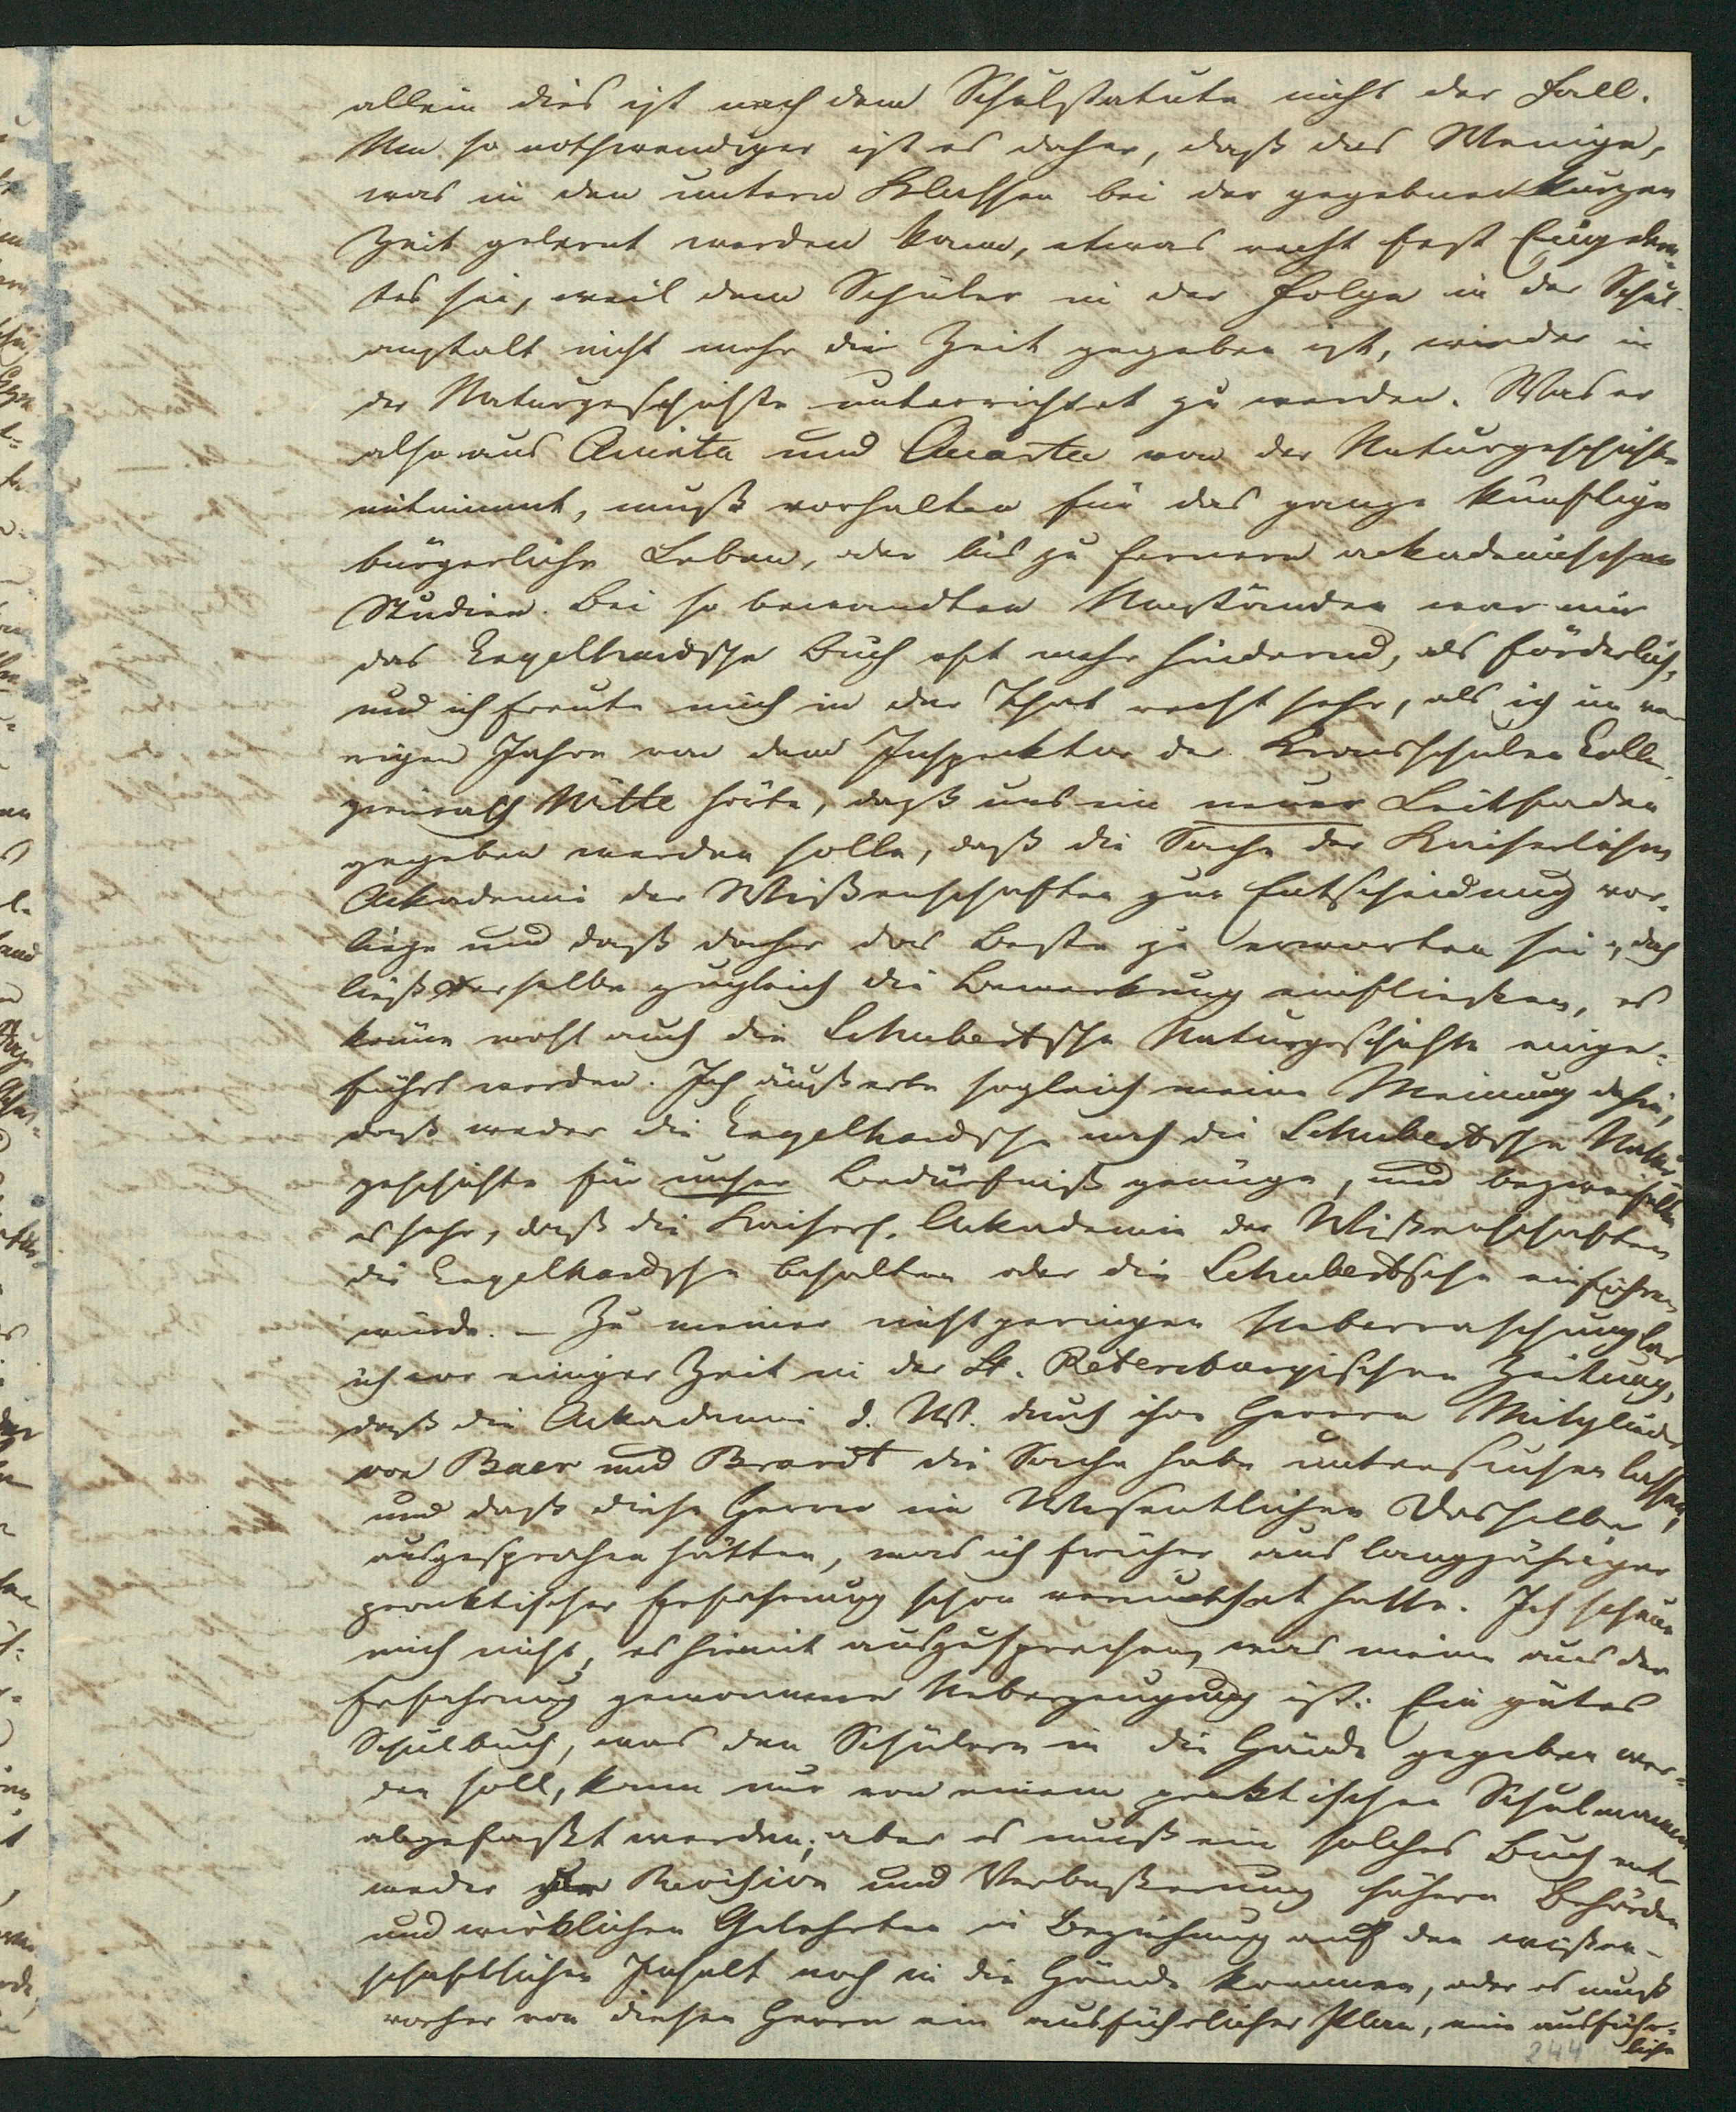 allein dies ist nach dem Schulstatute nicht der Fall.
Um so nothwendiger ist es daher, daß das Wenige,
was in den untern Klassen bei der gegebnen kurzen
Zeit gelernt werden kann, etwas recht fest Eingelern-
tes sei, weil dem Schüler in der Folge in der Schul-
anstalt nicht mehr die Zeit gegeben ist, wieder in
der Naturgeschichte unterrichtet zu werden. Was er
also aus Quinta und Quarta von der Naturgeschichte
mitnimmt, muß vorhalten für das ganze künftige
bürgerliche Leben, oder bis zu fernern akademischen
Studien. Bei so bewandten Umständen war mir
das Engelhardtsche Buch oft mehr hindernd, als förderlich,
und ich freute mich in der That recht sehr, als ich im vo-
rigen Jahre von dem Inspektor der Kronsschulen Colle-
gienrath Witte hörte, daß uns ein neuer Leitfaden
gegeben werden solle, daß die Sache der Kaiserlichen
Akademie der Wißenschaften zur Entscheidung vor-
liege und daß daher das Beste zu erwarten sei, doch
ließ derselbe zugleich die Bemerkung einfließen, es
könne wohl auch die Schubertsche Naturgeschichte einge-
führt werden. Ich äußerte sogleich meine Meinung dahin,
daß weder die Engelhardsche noch die Schubertsche Natur
geschichte für unser Bedürfniß genüge, und bezweifelte
es sehr, daß die Kaiserl. Akademie der Wißenschaften
die Engelhardsche behalten oder die Schubertsche einführen
würde. – Zu meiner nicht geringen Ueberraschung las
ich vor einiger Zeit in der St. Petersburgischen Zeitung,
daß die Akademie d. W. durch ihre Herren Mitglieder
von Baer und Brandt die Sache habe untersuchen lassen,
und daß diese Herren im Wesentlichen Dasselbe
ausgesprochen hätten, was ich früher aus langjähriger
praktischer Erfahrung schon vermuthet hatte. Ich scheue
mich nicht, es hiemit auszusprechen, was meine aus der
Erfahrung gewonnene Ueberzeugung ist: Ein gutes
Schulbuch, was den Schülern in die Hände gegeben wer-
den soll, kann nur von einem praktischen Schulmanne
abgefaßt werden; aber es muß ein solches Buch ent-
weder zur Revision und Verbeßerung höhern Behörden
und wirklichen Gelehrten in Beziehung auf den wißen-
schaftlichen Inhalt noch in die Hände kommen, oder es muß
vorher von diesen Herrn ein ausführlicher Plan, eine ausführ-
liche
244